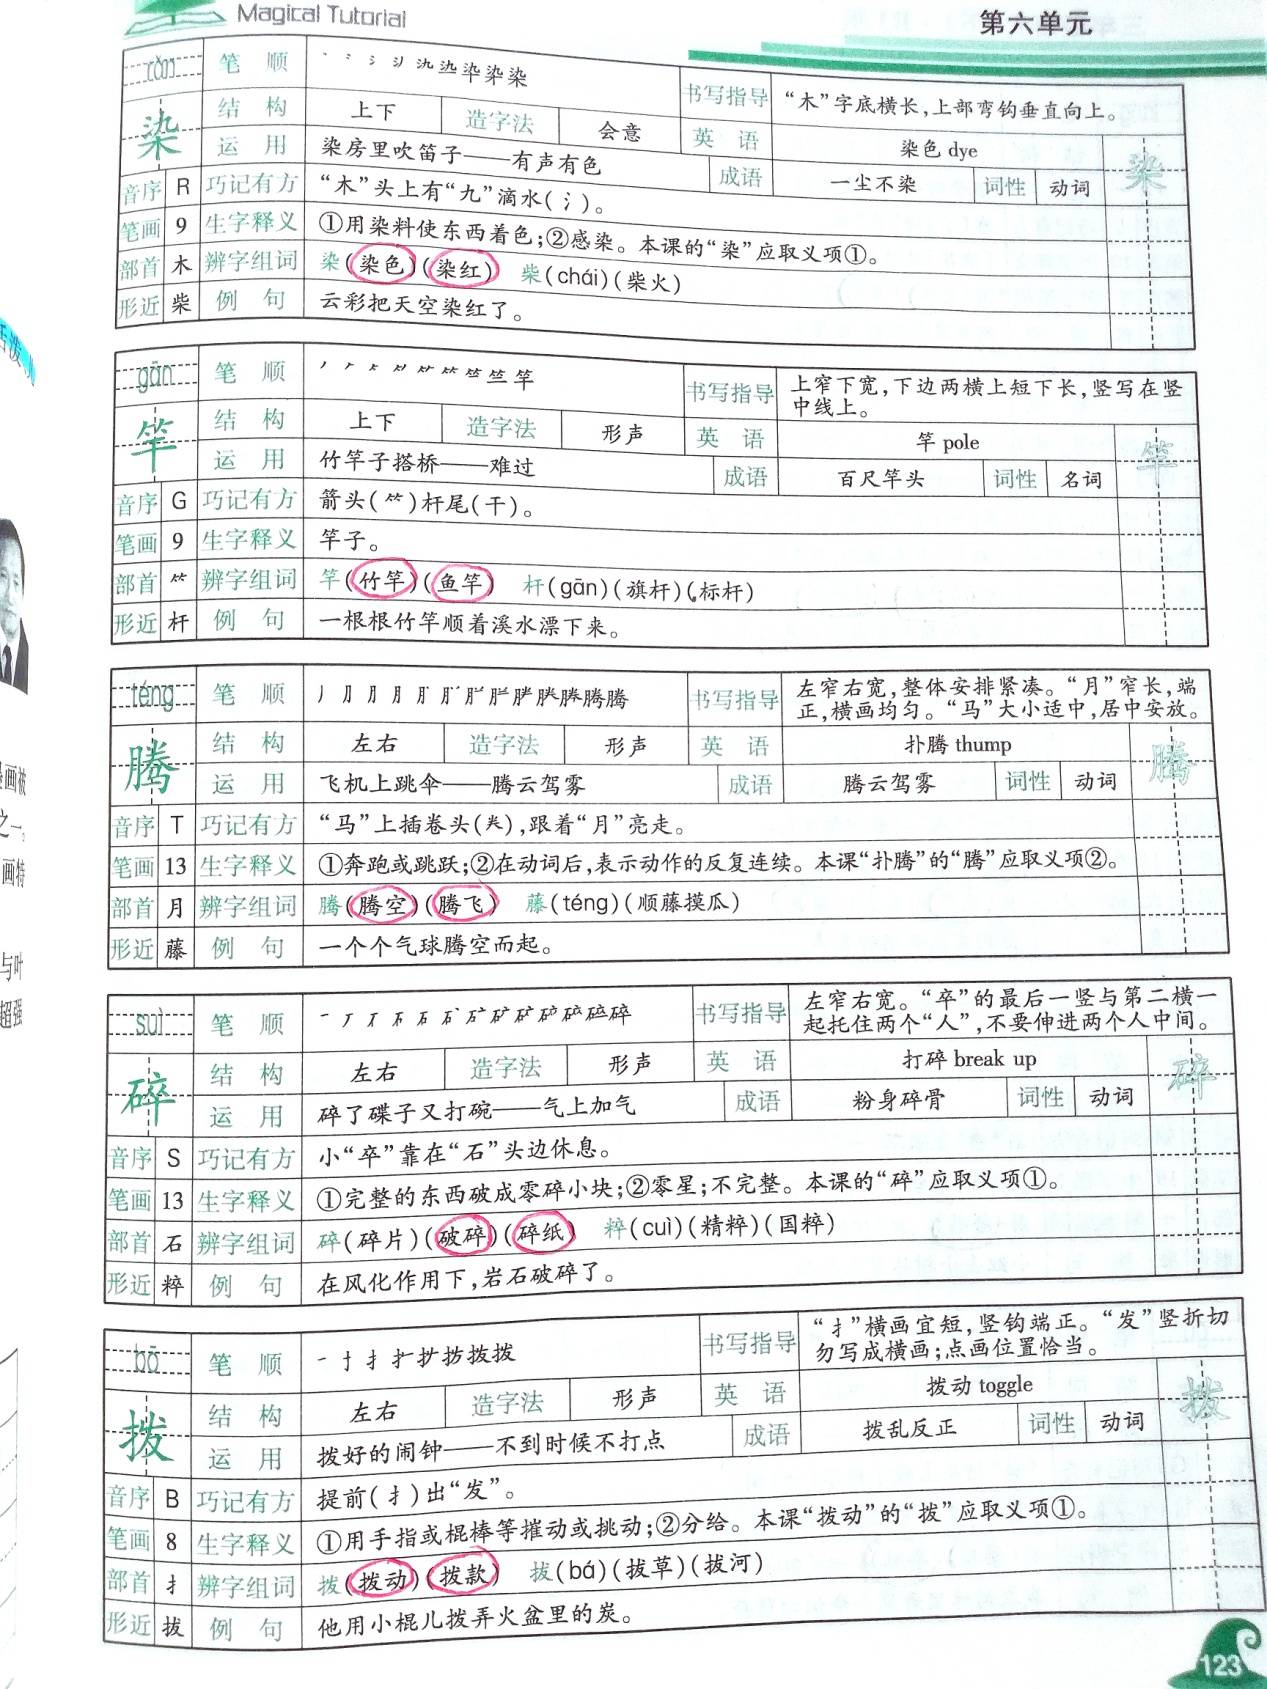 Magical Tutorial
第六单元
rǎn 笔顺 书写指导 “木”字底横长,上部弯钩垂直向上。
染 结构 上下 造字法 会意 英语 染色 dye 染
运用 染房里吹笛子——有声有色 成语 一尘不染 词性 动词
音序 R 巧记有方 “木”头上有“九”滴水(氵)。
笔画 9 生字释义 ①用染料使东西着色;②感染。本课的“染”应取义项①。
部首 木 辨字组词 染(染色)(染红) 柴(chái)(柴火)
形近 柴 例句 云彩把天空染红了。
gān 笔顺 书写指导 上窄下宽,下边两横上短下长,竖写在竖
中线上。
竿 结构 上下 造字法 形声 英语 竿 pole 竿
运用 竹竿子搭桥——难过 成语 百尺竿头 词性 名词
音序 G 巧记有方 箭头(⺮)杆尾(干)。
笔画 9 生字释义 竿子。
部首 ⺮ 辨字组词 竿(竹竿)(鱼竿) 杆(gān)(旗杆)(标杆)
形近 杆 例句 一根根竹竿顺着溪水漂下来。
téng 笔顺 书写指导 左窄右宽,整体安排紧凑。“月”窄长,端
正,横画均匀。“马”大小适中,居中安放。
腾 结构 左右 造字法 形声 英语 扑腾 thump 腾
运用 飞机上跳伞——腾云驾雾 成语 腾云驾雾 词性 动词
音序 T 巧记有方 “马”上插卷头(龹),跟着“月”亮走。
笔画 13 生字释义 ①奔跑或跳跃;②在动词后,表示动作的反复连续。本课“扑腾”的“腾”应取义项②。
部首 月 辨字组词 腾(腾空)(腾飞) 藤(téng)(顺藤摸瓜)
形近 藤 例句 一个个气球腾空而起。
suì 笔顺 书写指导 左窄右宽。“卒”的最后一竖与第二横一
起托住两个“人”,不要伸进两个人中间。
碎 结构 左右 造字法 形声 英语 打碎 break up 碎
运用 碎了碟子又打碗——气上加气 成语 粉身碎骨 词性 动词
音序 S 巧记有方 小“卒”靠在“石”头边休息。
笔画 13 生字释义 ①完整的东西破成零碎小块;②零星;不完整。本课的“碎”应取义项①。
部首 石 辨字组词 碎(碎片)(破碎)(碎纸) 粹(cuì)(精粹)(国粹)
形近 粹 例句 在风化作用下,岩石破碎了。
bō 笔顺 书写指导 “扌”横画宜短,竖钩端正。“发”竖折切
勿写成横画;点画位置恰当。
拨 结构 左右 造字法 形声 英语 拨动 toggle 拨
运用 拨好的闹钟——不到时候不打点 成语 拨乱反正 词性 动词
音序 B 巧记有方 提前(扌)出“发”。
笔画 8 生字释义 ①用手指或棍棒等摧动或挑动;②分给。本课“拨动”的“拨”应取义项①。
部首 扌 辨字组词 拨(拨动)(拨款) 拔(bá)(拔草)(拔河)
形近 拔 例句 他用小棍儿拨弄火盆里的炭。
123